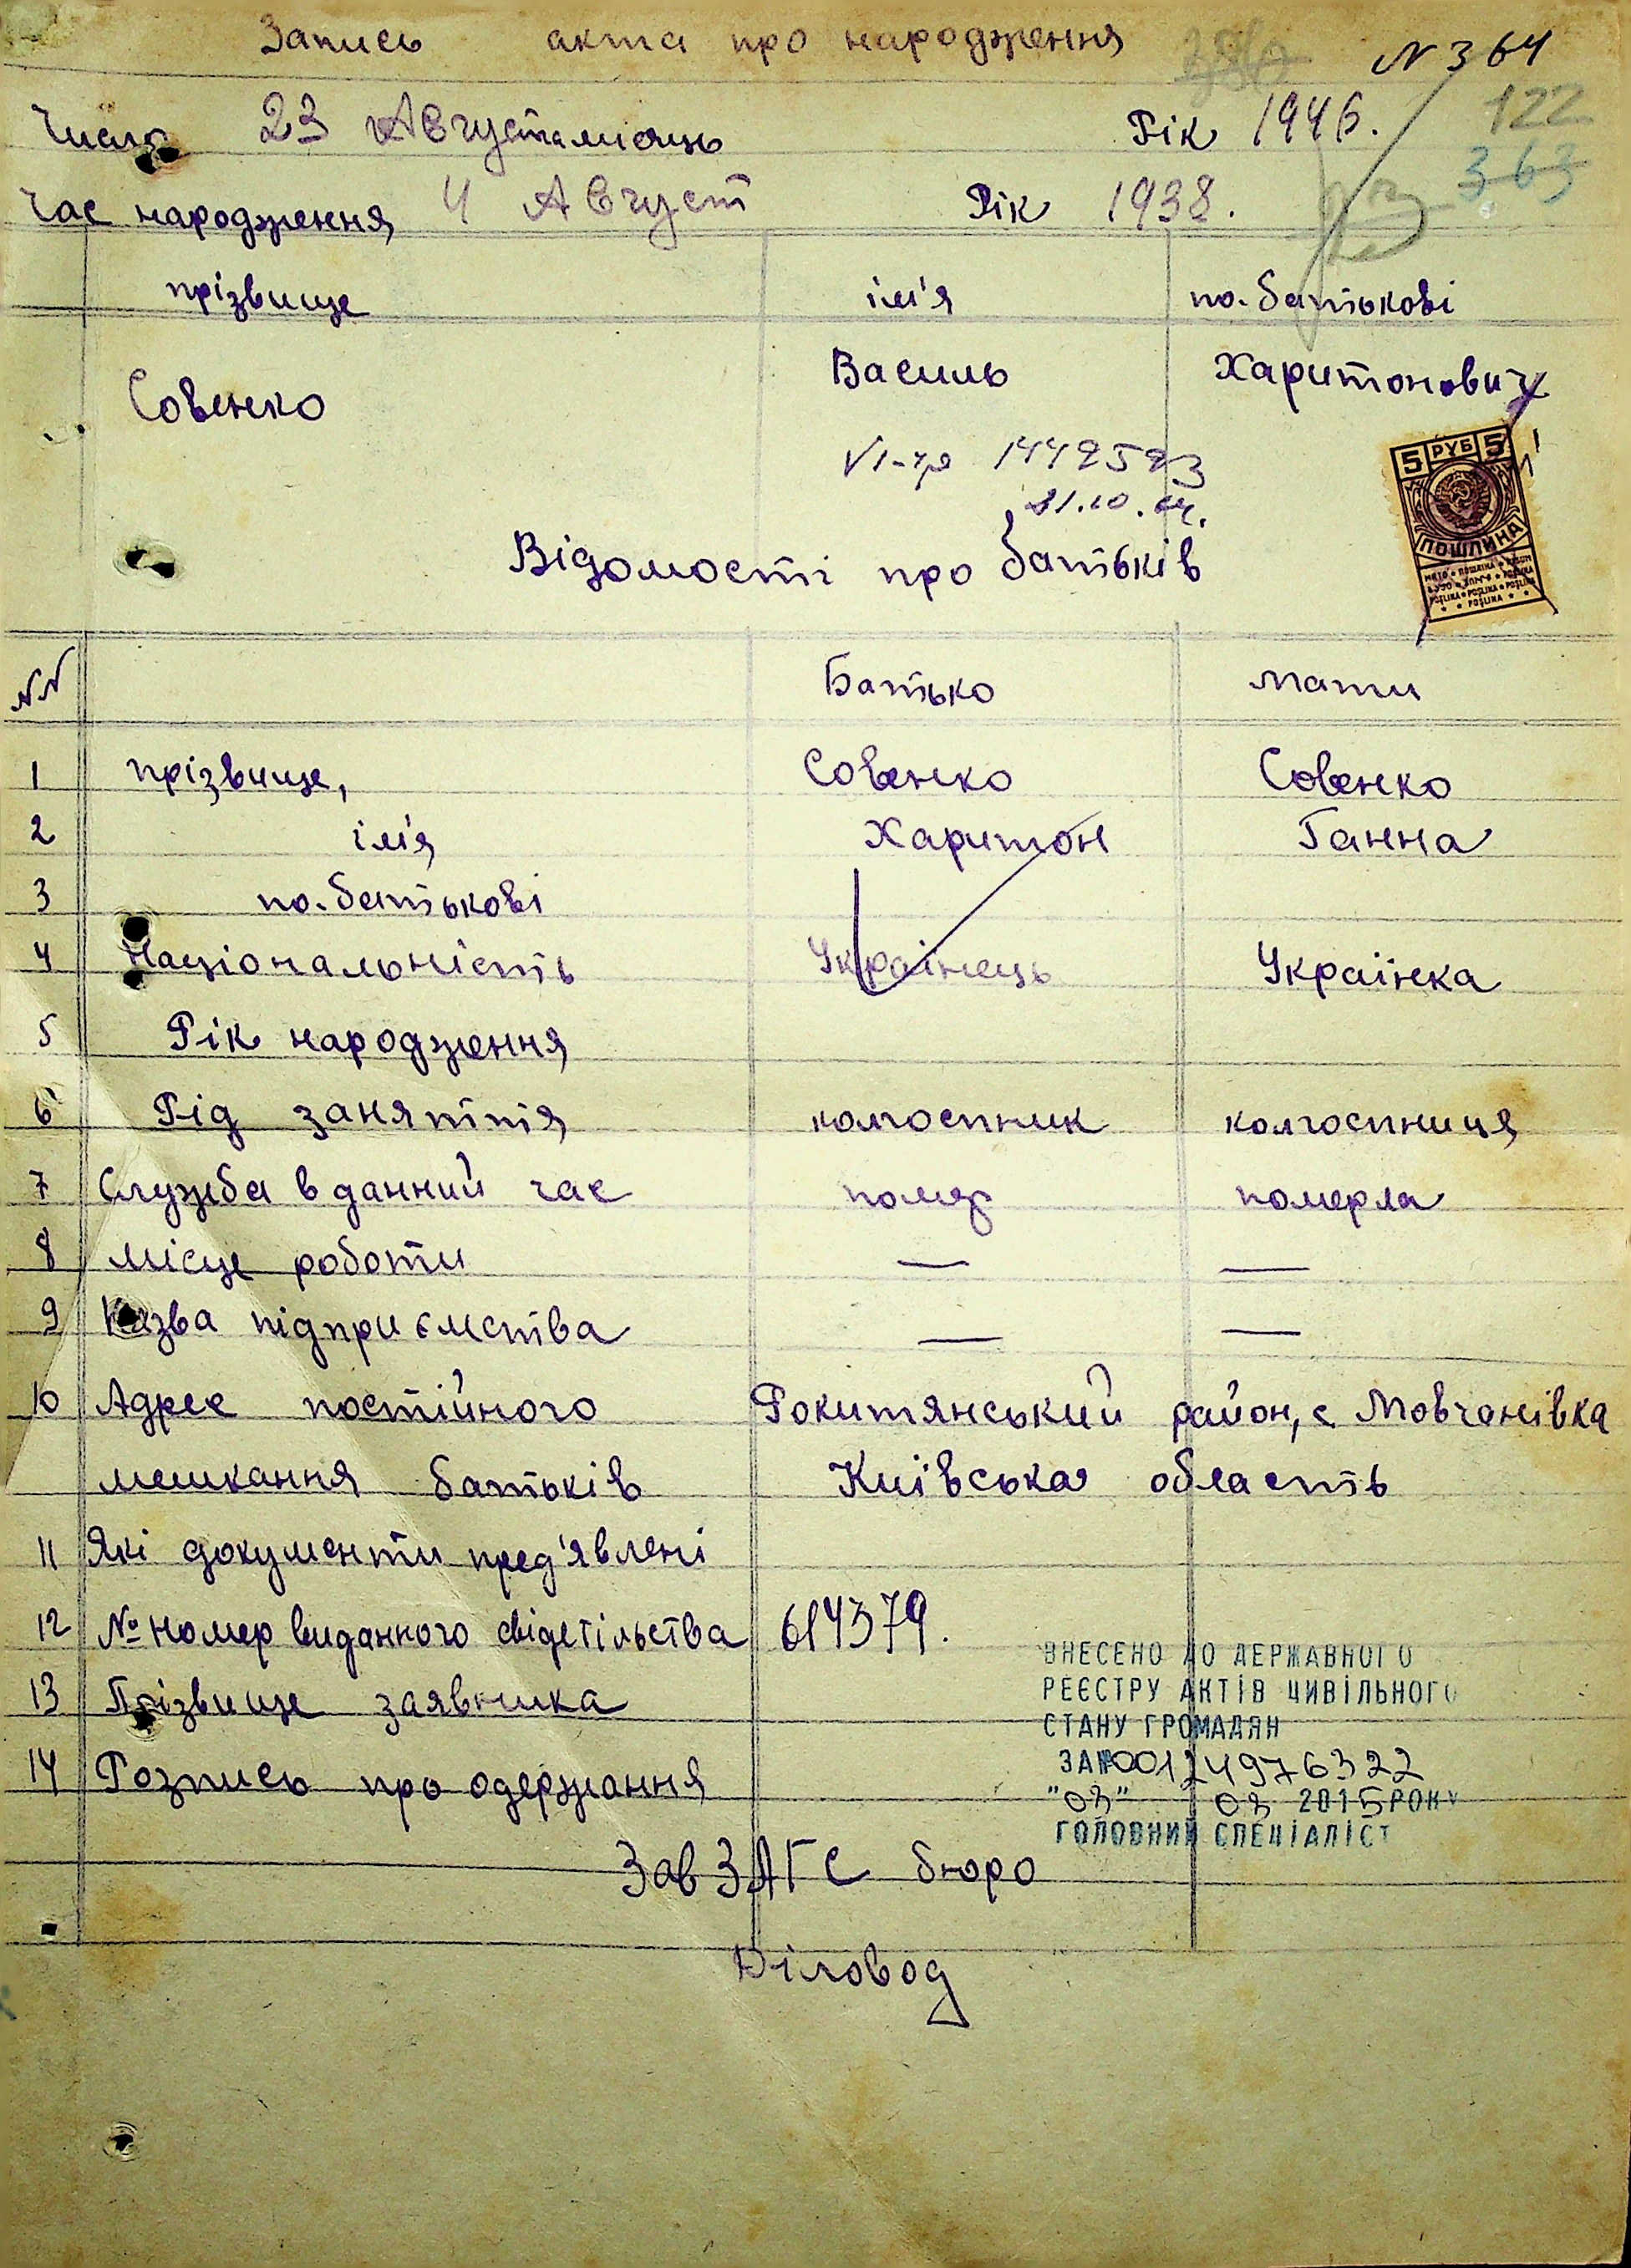 Запись акта про народження N 364
Число 23 Августа місяць Рік 1946. 122
363
Час народження 4 Август Рік 1938.
прізвище ім'я по-батькові
Совенко Василь Харитонович
VI-
31.10.
5 РУБ 5
ПОШЛИНА
Відомості про батьків
NN Батько Мати
1 прізвище, Совенко Совенко
2 ім'я Харитон Ганна
3 по-батькові
4 Національність Українець Українка
5 Рік народження
6 Рід заняття колгоспник колгоспниця
7 Служба в данний час помер померла
8 Місце роботи — —
9 Назва підприємства — —
10 Адрес постійного Рокитянський район, с Мовчанівка
мешкання батьків Київська область
11 Які документи пред'явлені
12 № Номер виданного свідетільства 614379.
13 Прізвище заявника
14 Розпись про одержання
ВНЕСЕНО ДО ДЕРЖАВНОГО
РЕЄСТРУ АКТІВ ЦИВІЛЬНОГО
СТАНУ ГРОМАДЯН
ЗА №00124976322
"03" 03 2015 РОКУ
ГОЛОВНИЙ СПЕЦІАЛІСТ
Зав ЗАГС бюро
Діловод